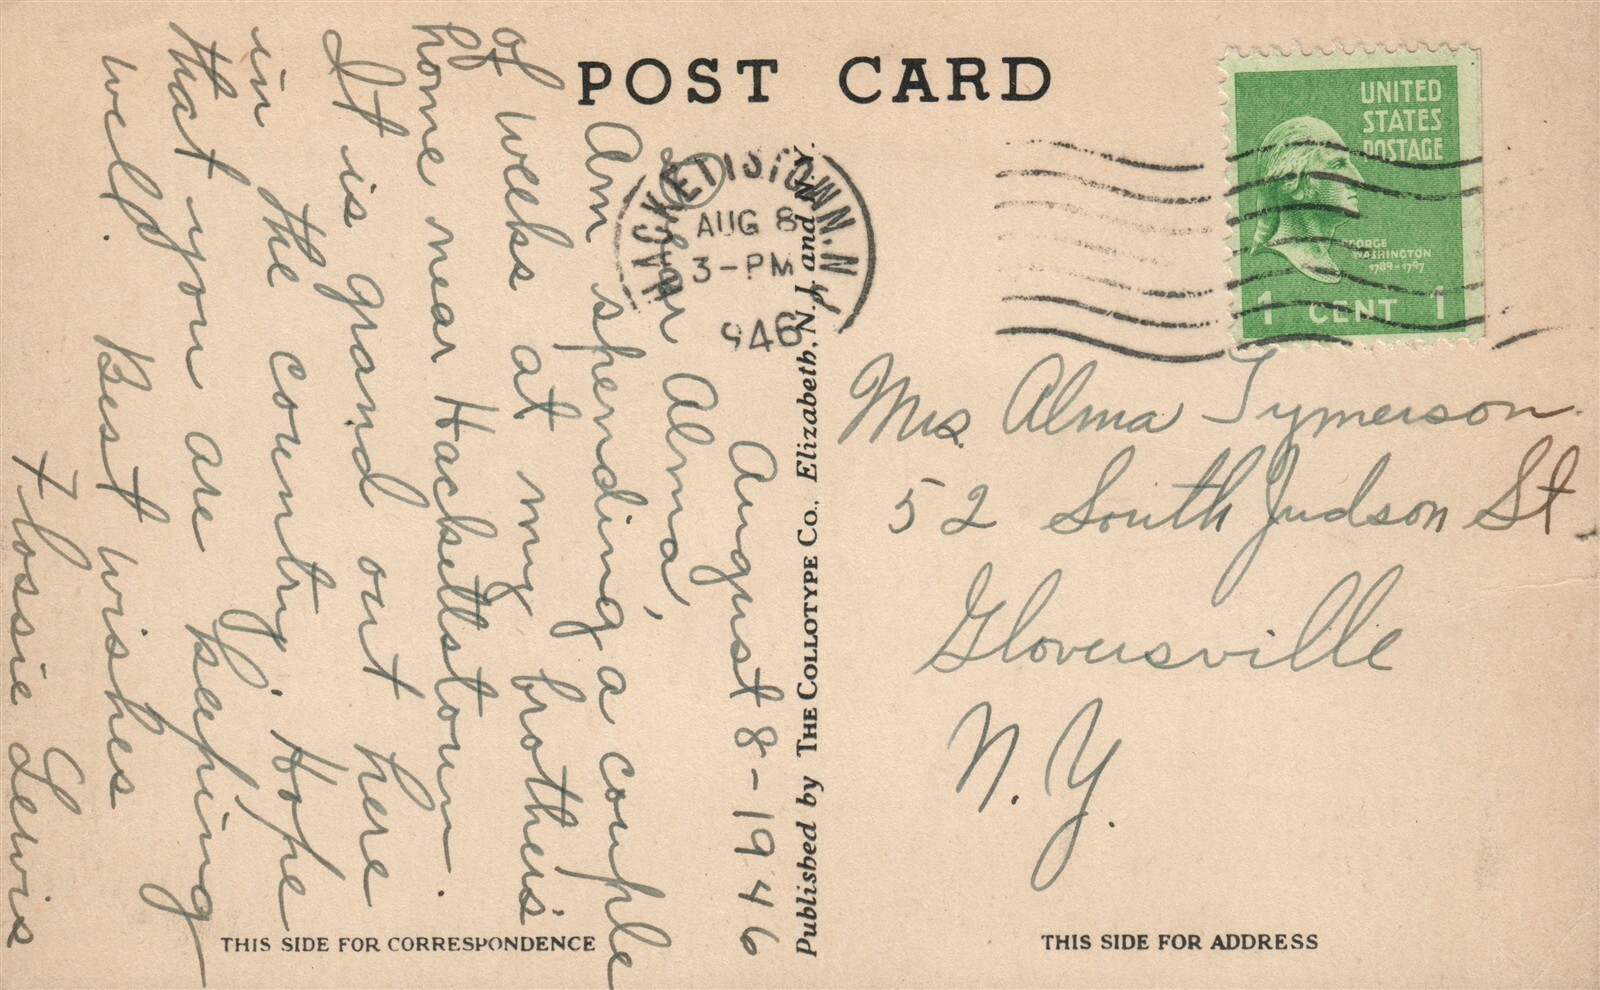 POST CARD
August 8-1946
Dear Alma,
Am spending a couple
of weeks at my brother's
home near Hackettstown.
It is grand out here
in the country. Hope
that you are keeping
well. Best wishes
Flossie Lewis
THIS SIDE FOR CORRESPONDENCE
Published by THE COLLOTYPE CO., Elizabeth, N. J. and N. Y.
HACKETTSTOWN. N. J.
AUG 8
3-PM
1946
UNITED
STATES
POSTAGE
GEORGE
WASHINGTON
1789-1797
1 CENT 1
Mrs. Alma Tymerson
52 South Judson St.
Gloversville
N. Y.
THIS SIDE FOR ADDRESS